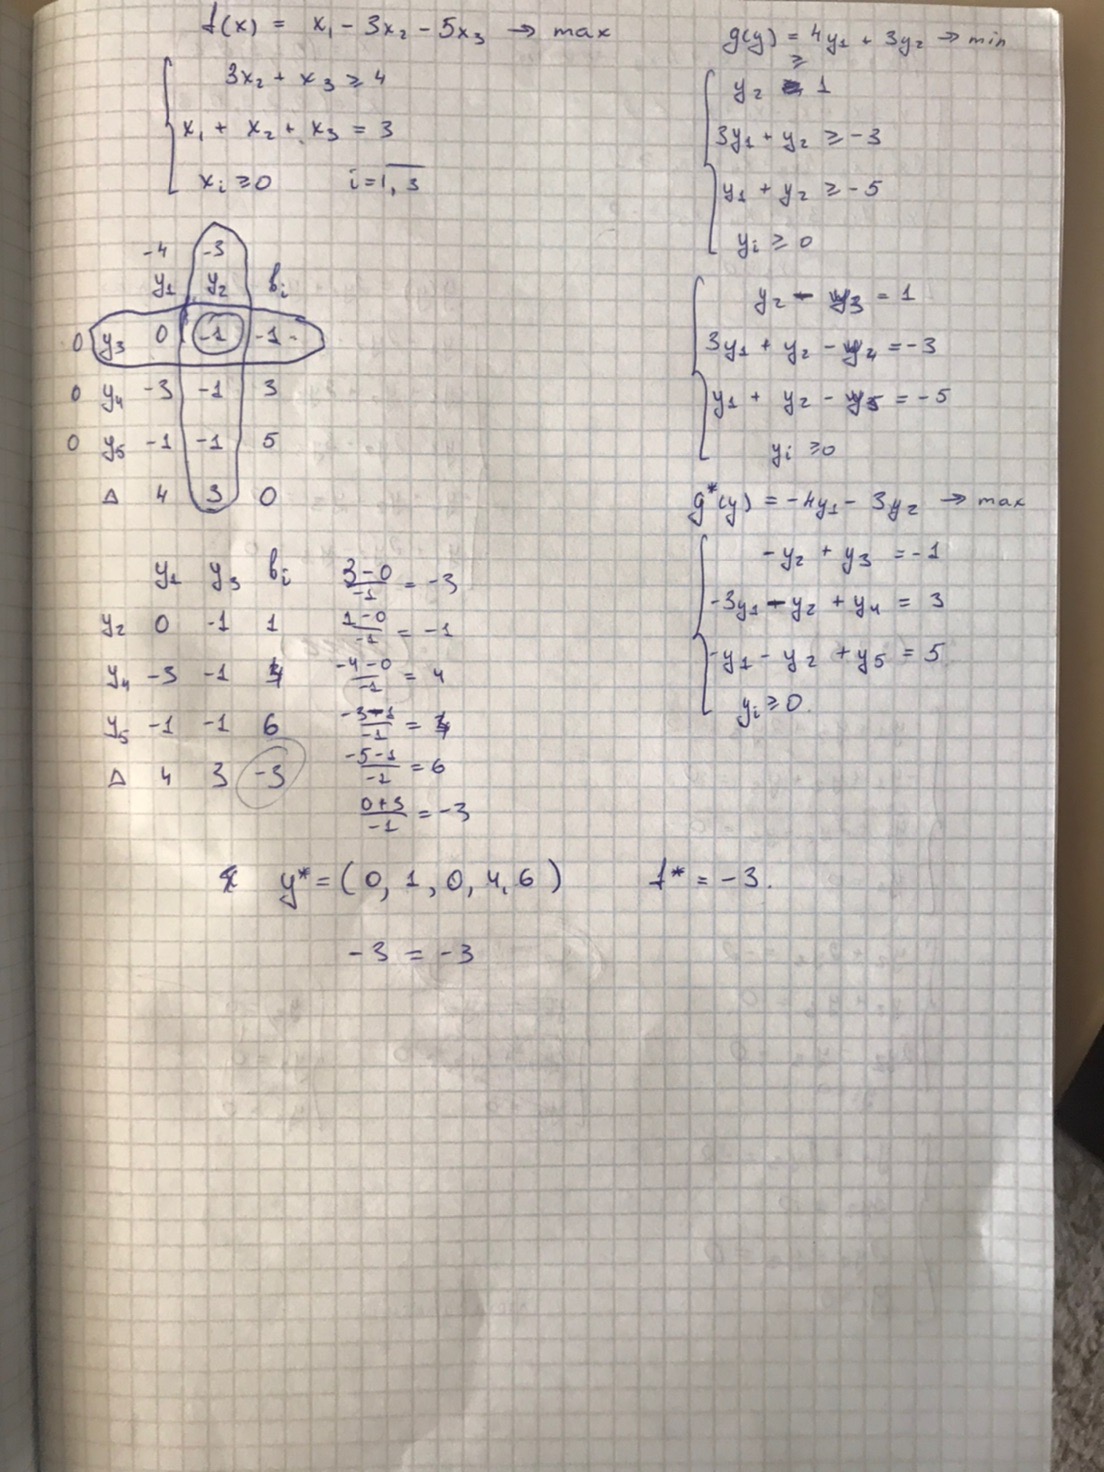 f(x) = x₁ - 3x₂ - 5x₃ → max
3x₂ + x₃ ≥ 4
x₁ + x₂ + x₃ = 3
xᵢ ≥ 0 i = 1, 3
-4 -3
y₁ y₂ bᵢ
0 y₃ 0 -1 -1
0 y₄ -3 -1 3
0 y₅ -1 -1 5
Δ 4 3 0
y₁ y₃ bᵢ
y₂ 0 -1 1
y₄ -3 -1 4
y₅ -1 -1 6
Δ 4 3 -3
3-0/-1 = -3
1-0/-1 = -1
-4-0/-1 = 4
-3-1/-1 = 4
-5-1/-1 = 6
0+3/-1 = -3
g(y) = 4y₁ + 3y₂ → min
y₂ ≥ 1
3y₁ + y₂ ≥ -3
y₁ + y₂ ≥ -5
yᵢ ≥ 0
y₂ - y₃ = 1
3y₁ + y₂ - y₄ = -3
y₁ + y₂ - y₅ = -5
yᵢ ≥ 0
g*(y) = -4y₁ - 3y₂ → max
-y₂ + y₃ = -1
-3y₁ - y₂ + y₄ = 3
-y₁ - y₂ + y₅ = 5
yᵢ ≥ 0.
y* = (0, 1, 0, 4, 6) f* = -3.
-3 = -3